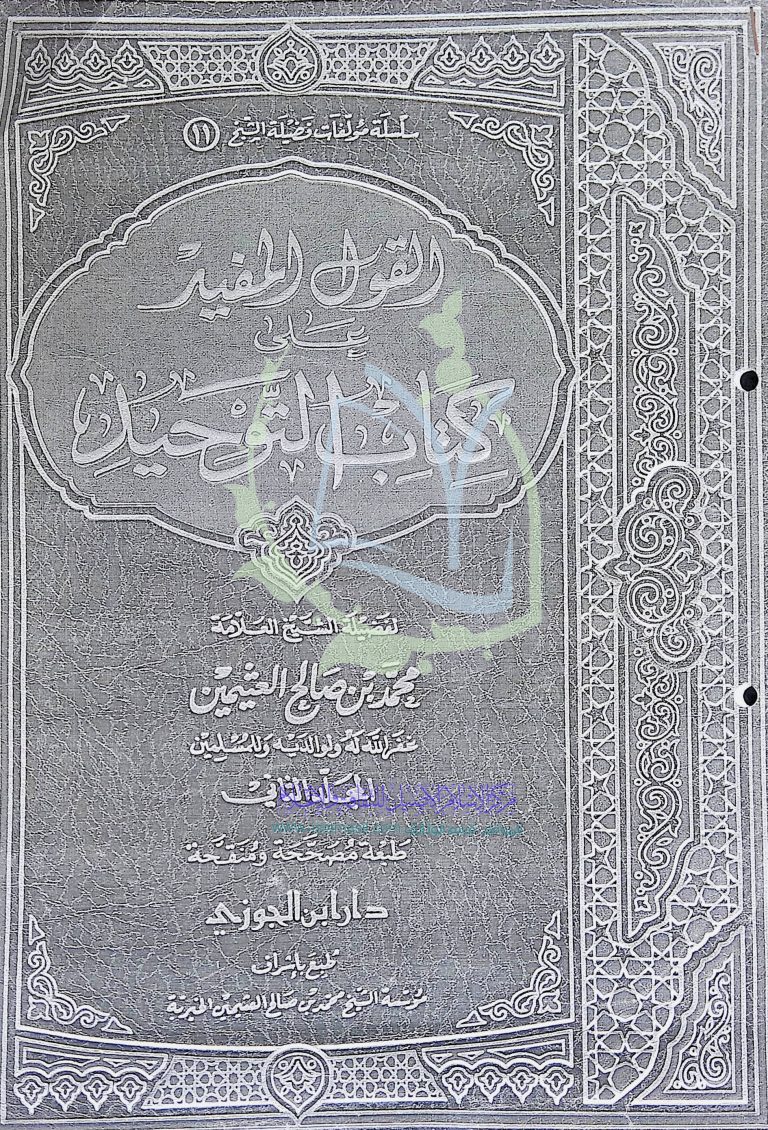 سلسلة مؤلفات فضيلة الشيخ (١١)
القول المفيد
على
كتاب التوحيد
لفضيلة الشيخ العلامة
محمد بن صالح العثيمين
غفر الله له ولوالديه وللمسلمين
المجلد الثاني
طبعة مصححة ومنقحة
دار ابن الجوزي
طبع بإشراف
مؤسسة الشيخ محمد بن صالح العثيمين الخيرية